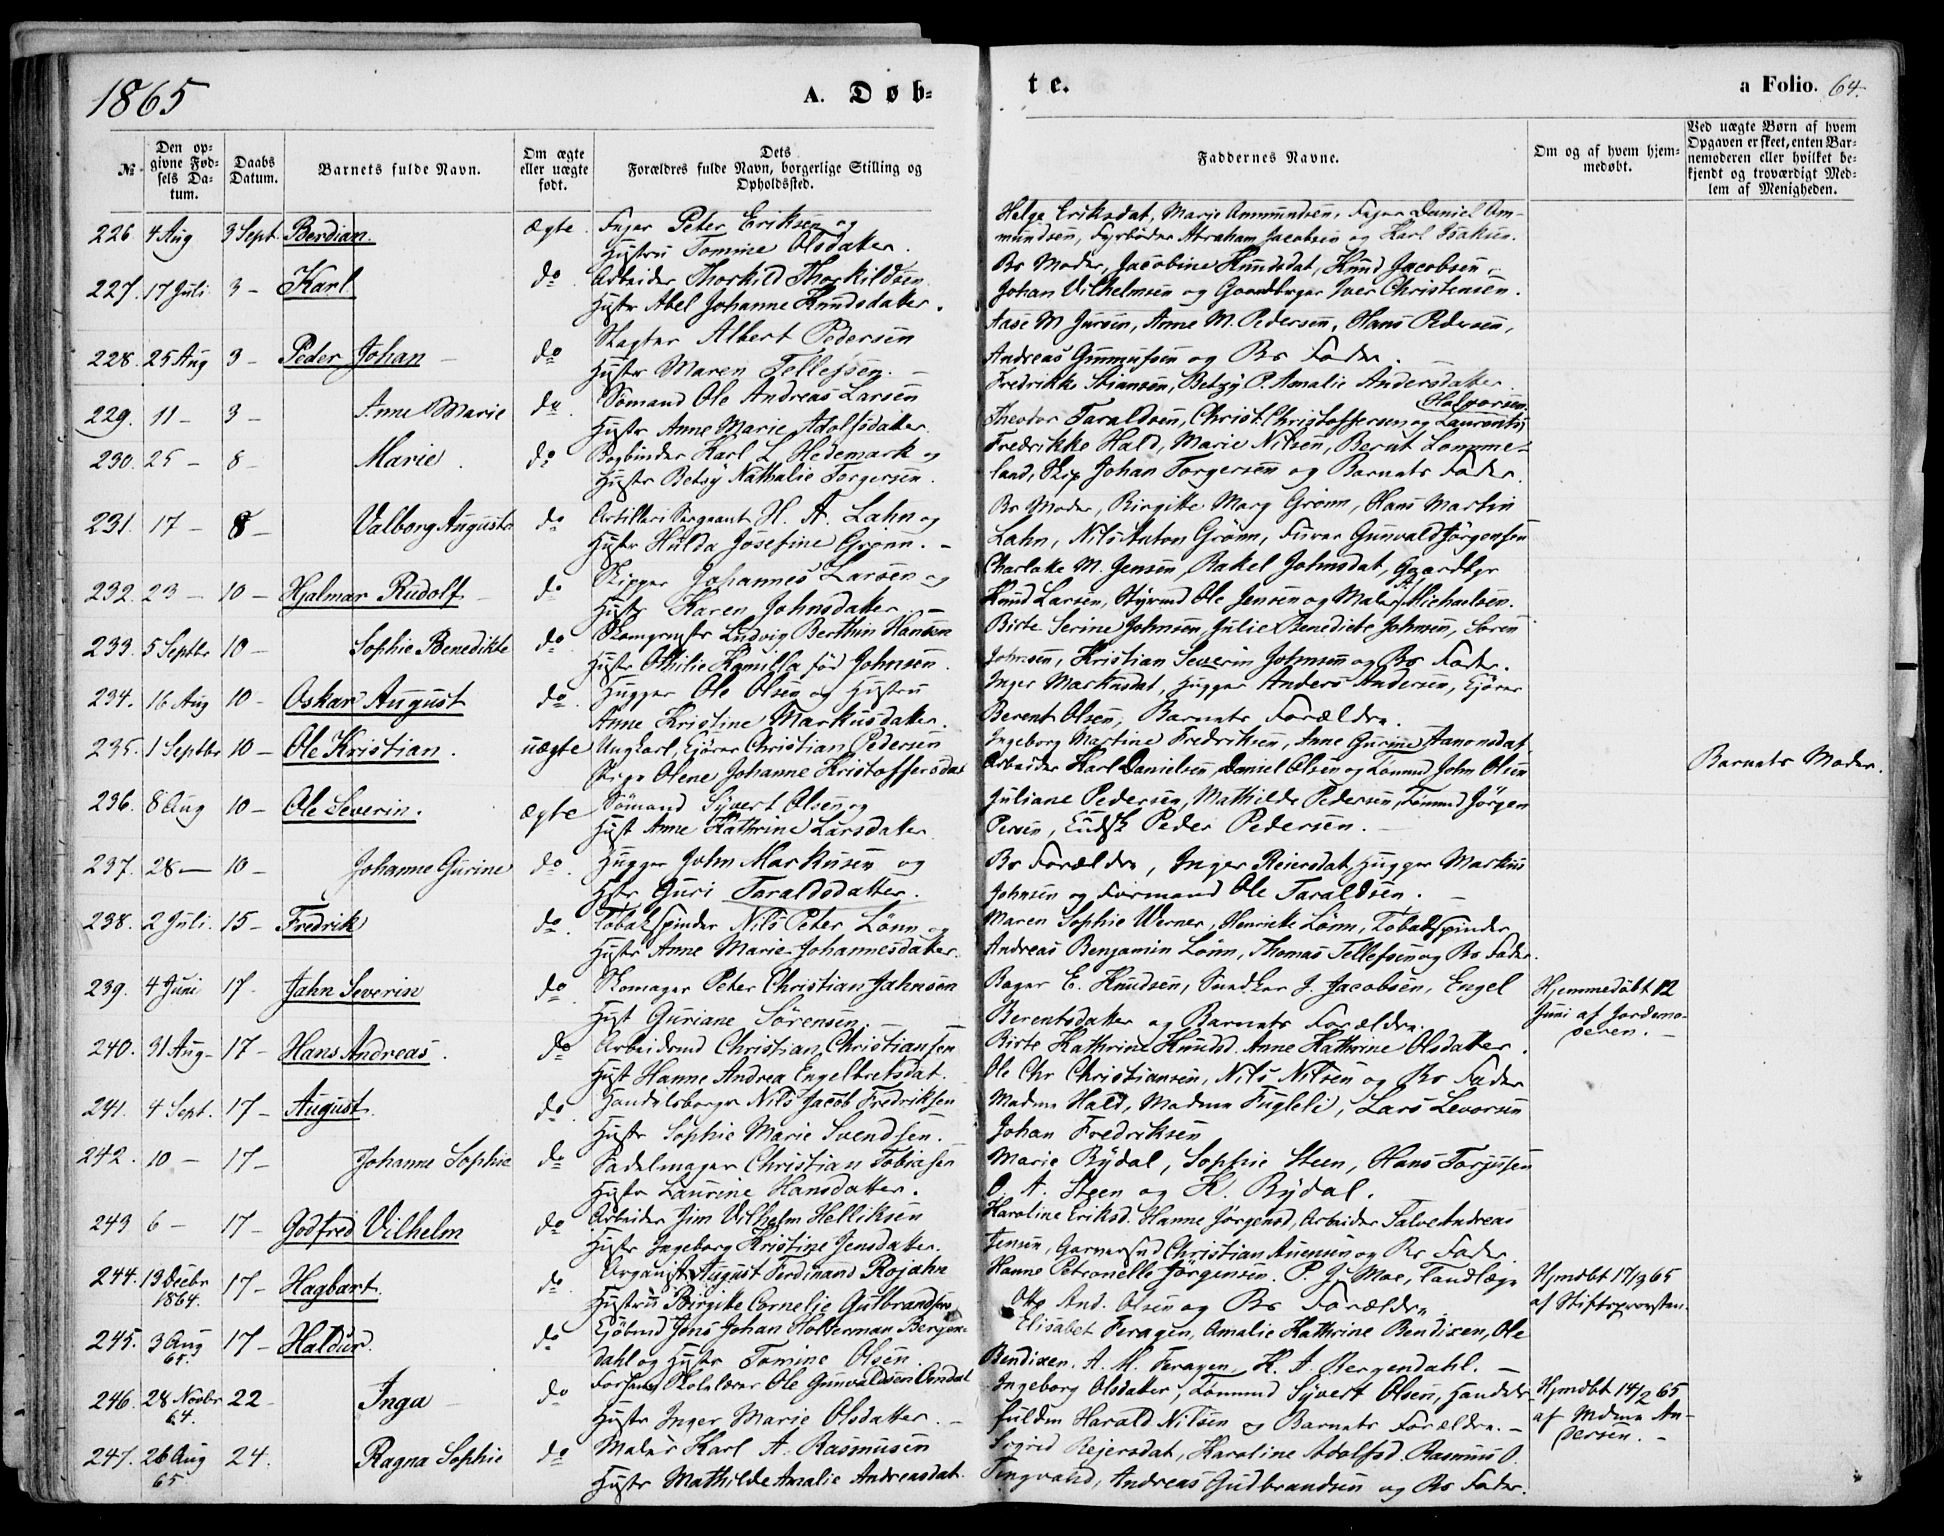 1865
A. Døb-
te.
a Folio. 64.
№
Den op-
givne Fød-
sels Da-
tum.
Daabs
Datum.
Barnets fulde Navn.
Om ægte
eller uægte
født.
Dets
Forældres fulde Navn, borgerlige Stilling og
Opholdssted.
Faddernes Navne.
Om og af hvem hjem-
medøbt.
Ved uægte Børn af hvem
Opgaven er skeet, enten Bar-
nemoderen eller hvilket be-
kjendt og troværdigt Med-
lem af Menigheden.
226 4 Aug 3 Sept. Berdian. ægte. Peter Eriksen og
Hustru Tomine Olsdatter.
Helge Eriksdat, Marie Ammundsen, Daniel Am-
mundsen, Fyrbøder Abraham Jacobsen og Karl Isaksen.
227. 17 Juli 3 - Karl do. Arbeider Thorkild Thorkildsen
Hustr Abel Johanne Knudsdatter.
Bs Moder, Jacobine Knudsdat, Knud Jacobsen,
Johan Vilhelmsen og Gaardbryger Iver Christensen.
228. 25 Aug 3 - Peder Johan - do. Slagter Albert Pedersen
Hustr Maren Tellefsen. -
Aase M Jursen, Anne M. Pedersen, Hans Pedersen,
Andreas Gunmufsen og Bs Fader.
229. 11 - 3 - Anne Marie do. Sømand Ole Andreas Larsen
Hustr Anne Marie Adolfsdatter.
Fredrikke Stiansen, Betzy P. Amalie Andersdatter.
Theodor Taraldsen, Christ. Christoffersen og Laurentz
Halvorsen.
230. 25 - 8 - Marie. do. Bogbinder Karl L Hedemark og
Hustr Betsy Nathalie Torgersen.
Fredrikke Hald, Marie Nilsen, Berut Lomme-
land, Skip Johan Torgersen og Barnets Fader.
231. 17 - 8 - Valborg Augusta do Artilleri Sergeant H. A. Lahn og
Hustr Hulda Josefine Grønn. -
Bs Moder, Birgitte Marg Grønn, Hans Martin
Lahn, Nils Anton Grønn, Furer Gunvald Jørgensen
232. 23 - 10 - Hjalmar Rudolf - do. Skipper Johannes Larsen og
Hustr Karen Johnsdatter. -
Charlotte M. Jensen, Rakel Johnsdat, Gaardbgr
Knud Larsen, Styrmd Ole Jensen og Maler A. Michaelsen.
233. 5 Septbr 10 - Sophie Benedikte do. Ludvig Berthin Hansen
Hustr Othilie Kamilla fød Johnsen.
Birte Serine Johnsen, Julie Benedicte Johnsen, Søren
Johnsen, Kristian Severin Johnsen og Bs Fader.
234. 16 Aug 10 - Oskar August do. Hugger Ole Olsen og Hustru
Anne Kristine Markusdatter.
Inger Markusdat, Hugger Anders Andersen, Kjører
Berent Olsen, Barnets Forældre.
235. 1 Septbr 10 - Ole Kristian. uægte Ungkarl, Kjører Christian Pedersen
Pige Olene Johanne Kristoffersdat
Ingeborg Martine Fredriksen, Anne Gurine Aanonsdat.
Arbeider Karl Danielsen, Daniel Olsen og Tømmd John Olsen
Barnets Moder.
236. 8 Aug 10 - Ole Severin. ægte Sømand Syvert Olsen og
Hust Anne Kathrine Larsdatter.
Juliane Pedersen, Mathilde Pedersen, Tømmd Jörgen
Persen, Peder Pedersen. -
237. 28 - 10 - Johanne Gurine do. Hugger John Markusen og
Hstr Guri Taraldsdatter.
Bs Forældre, Inger Reiersdat, Hugger Markus
Johnsen og Formand Ole Taraldsen. -
238. 2 Juli. 15 - Fredrik do. Tobakspinder Nils Peter Lønn og
Hustr Anne Marie Johannesdatter.
Maren Sophie Werner, Henriette Lønn, Tobakspinder
Andreas Benjamin Lønn, Thomas Tellefsen og Bs Fader.
239. 4 Juni 17 - Jahn Severin do. Skomager Peter Christian Jahnsen
Hust Guriane Sørensen.
Bager E. Knudsen, J. Jacobsen, Engel
Berentsdatter og Barnets Forældre.
Hjemmedøbt 12
Juni af Jordemo-
deren. -
240. 31 Aug - 17 - Hans Andreas. do Arbeidsmd Christian Christiansen
Hust Hanne Andrea Engelbretsdat.
Birte Kathrine Knudsd. Anne Kathrine Olsdatter.
Ole Chr Christiansen, Nils Nilsen og Bs Fader
241. 4 Sept. 17 - August. do. Handelsborger Nils Jacob Fredriksen
Hustr Sophie Marie Svendsen.
Madme Hald, Madme Fuglelie, Lars Levorsen
Johan Fredriksen
242. 10 - 17 - Johanne Sophie do Sadelmager Christian Tobiasen
Hustr Laurine Hansdatter.
Marie Rydal, Sophie Steen, Hans Torjusen
O. A. Steen og K. Rydal.
243 6 - 17 - Godfred Vilhelm do Arbeider Jim Vilhelm Helliksen
Hustr Ingeborg Kristine Jensdatter.
Karoline Eriksd. Hanne Jørgensd, Arbeider Salve Andreas
Jensen, Garversvd Christian Avensen og Bs Fader.
244. 13 Decbr
1864. 17 - Hagbart. do. Organist August Ferdinand Rojahn
Hustru Birgitte Cornelie Gulbrandsen
Hanne Petronelle Jørgensen. P. J. Moe, Tandlæge
Otto And. Olsen og Bs Forældre.
Hjmdbt 17/3 65
af Stiftsprovsten.
245. 3 Aug
65. 17 - Haldur. do Kjøbmd Jens Johan Holterman Bergen-
dahl og Hustr Tomine Olsen.
Elisabet Feragen, Amalie Kathrine Bendixen, Ole
Bendixen. A. M. Feragen, K. A. Bergendahl. -
246. 28 Novbr
64. 22 - Inga - do Skolelærer Ole Gunvaldsen Omdal
Hustr Inger Marie Olsdatter. -
Ingeborg Olsdatter, Tømmmd Syvert Olsen, Handels-
fuldm Harald Nilsen og Barnets Forældre. -
Hjmdbt 14/2 65
af Mdme An-
dersen. -
247. 26 Aug
65. 24. Ragna Sophie do Maler Karl A. Rasmusen
Hustr Mathilde Amalie Andreasdat.
Sigrid Reiersdat, Karoline Adolfsd Rasmus O.
Tingvold, Andreas Gudbrandsen og Bs Fader.